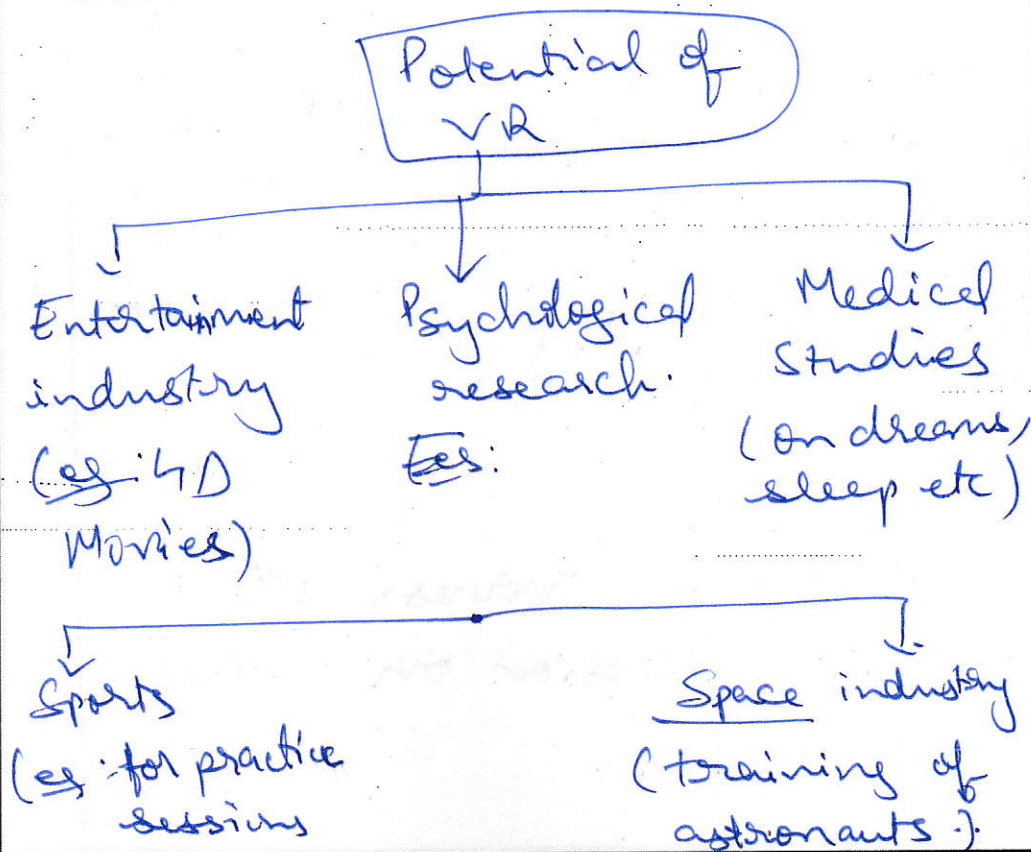 Potential of
VR
Entertainment
industry
(eg: 4D
Movies)
Psychological
research.
Medical
Studies
(on dreams,
sleep etc)
Sports
(eg: for practice
sessions
Space industry
(training of
astronauts.)